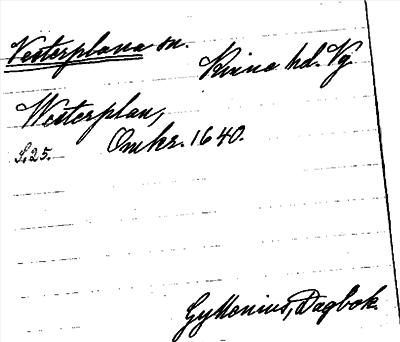 Vesterplana sn. Kinne hd. Vg
Westerplan,
S. 25. Omkr. 1640.
Gyllenius, Dagbok.